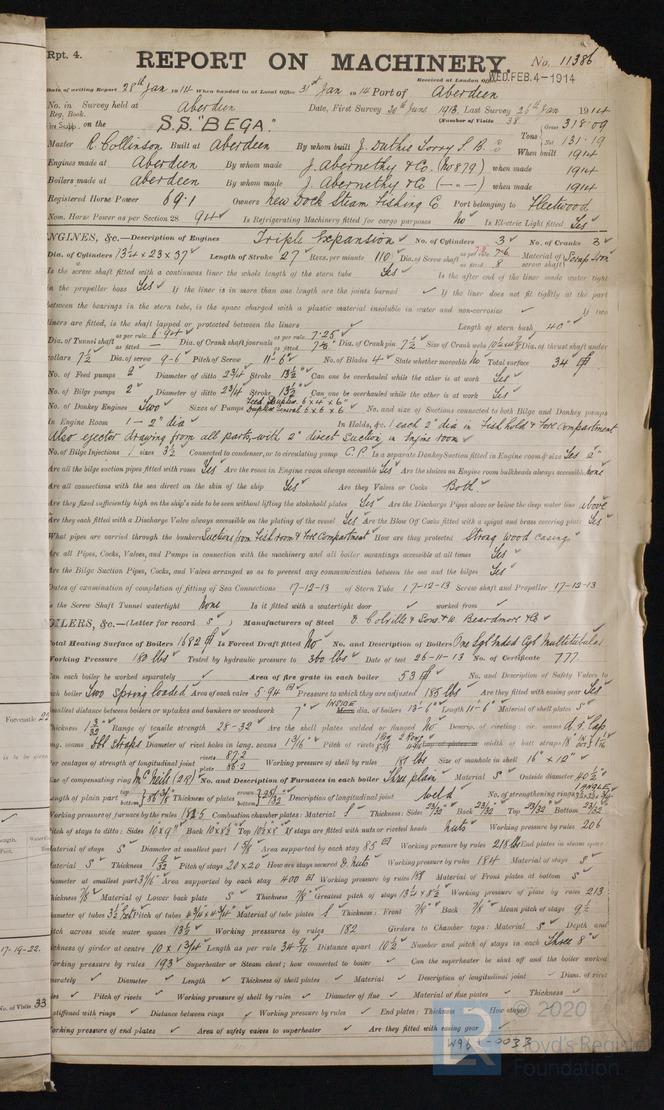 Rpt. 4.
REPORT ON MACHINERY.
No. 11386
Received at London Office WED. FEB. 4 - 1914
Date of writing Report 28th Jan 1914 When handed in at Local Office 31st Jan 1914 Port of Aberdeen
No. in Survey held at Aberdeen Date, First Survey 20th June 1913 Last Survey 26th Jan 1914
Reg. Book.
(Number of Visits 38
on the S.S. "BEGA." Tons Gross 318.09 Net 131.19
Master R. Collinson Built at Aberdeen By whom built J. Duthie Torry S.B. Co When built 1914
Engines made at Aberdeen By whom made J. Abernethy & Co. (No 879) when made 1914
Boilers made at Aberdeen By whom made J. Abernethy & Co (—"—) when made 1914
Registered Horse Power 89.1 Owners New Dock Steam Fishing Co Port belonging to Fleetwood
Nom. Horse Power as per Section 28 94 Is Refrigerating Machinery fitted for cargo purposes No Is Electric Light fitted Yes
ENGINES, &c.—Description of Engines Triple Expansion No. of Cylinders 3 No. of Cranks 3
Dia. of Cylinders 13¼ x 23 x 37 Length of Stroke 27 Revs. per minute 110 Dia. of Screw shaft as fitted 8 Material of screw shaft Scrap Iron
Is the screw shaft fitted with a continuous liner the whole length of the stern tube Yes Is the after end of the liner made water tight
in the propeller boss Yes If the liner is in more than one length are the joints burned If the liner does not fit tightly at the part
between the bearings in the stern tube, is the space charged with a plastic material insoluble in water and non-corrosive If two
liners are fitted, is the shaft lapped or protected between the liners Length of stern bush 40"
Dia. of Tunnel shaft as per rule 6.94 as fitted — Dia. of Crank shaft journals as per rule 7.25 Dia. of Crank pin 7½ Size of Crank webs Dia. of thrust shaft under
collars 7½ Dia. of screw 9-6 Pitch of Screw 11-6 No. of Blades 4 State whether moveable No Total surface 34
No. of Feed pumps 2 Diameter of ditto 2¾ Stroke 13½ Can one be overhauled while the other is at work Yes
No. of Bilge pumps 2 Diameter of ditto 2¾ Stroke 13½ Can one be overhauled while the other is at work Yes
No. of Donkey Engines Two Sizes of Pumps Feed Duplex 6 x 4 x 6 Duplex General 6 x 6 x 6 No. and size of Suctions connected to both Bilge and Donkey pumps
In Engine Room 1 - 2" dia In Holds, &c. 1 each 2" dia in Fish hold & Fore Compartment
Also ejector drawing from all parts, with 2" direct Suction in Engine room
No. of Bilge Injections 1 sizes 3½ Connected to condenser, or to circulating pump C.P. Is a separate Donkey Suction fitted in Engine room & size Yes 2"
Are all the bilge suction pipes fitted with roses Yes Are the roses in Engine room always accessible Yes Are the sluices on Engine room bulkheads always accessible none
Are all connections with the sea direct on the skin of the ship Yes Are they Valves or Cocks Both.
Are they fixed sufficiently high on the ship's side to be seen without lifting the stokehold plates Yes Are the Discharge Pipes above or below the deep water line above
Are they each fitted with a Discharge Valve always accessible on the plating of the vessel Yes Are the Blow Off Cocks fitted with a spigot and brass covering plate Yes
What pipes are carried through the bunkers Suctions from Fish room & Fore Compartment How are they protected Strong wood casing
Are all Pipes, Cocks, Valves, and Pumps in connection with the machinery and all boiler mountings accessible at all times Yes
Are the Bilge Suction Pipes, Cocks, and Valves arranged so as to prevent any communication between the sea and the bilges Yes
Dates of examination of completion of fitting of Sea Connections 17-12-13 of Stern Tube 17-12-13 Screw shaft and Propeller 17-12-13
Is the Screw Shaft Tunnel watertight none Is it fitted with a watertight door worked from
BOILERS, &c.—(Letter for record S) Manufacturers of Steel D. Colville & Sons & W. Beardmore & Co
Total Heating Surface of Boilers 1682 Is Forced Draft fitted No No. and Description of Boilers One Sgl Ended Cyl Multitubular
Working Pressure 180 lbs Tested by hydraulic pressure to 360 lbs Date of test 26-11-13 No. of Certificate 777
Can each boiler be worked separately Area of fire grate in each boiler 53 No. and Description of Safety Valves to
each boiler Two Spring loaded Area of each valve 5.94 Pressure to which they are adjusted 185 lbs Are they fitted with easing gear Yes
Smallest distance between boilers or uptakes and bunkers or woodwork 7" INSIDE dia. of boilers 13-6 Length 11-6 Material of shell plates S
Thickness Range of tensile strength 28-32 Are the shell plates welded or flanged No Descrip. of riveting: cir. seams d.r. lap
long. seams Dbl Straps Diameter of rivet holes in long. seams 1 3/16 Pitch of rivets width of butt straps
Per centages of strength of longitudinal joint rivets 87.2 plate 86.2 Working pressure of shell by rules 181 lbs Size of manhole in shell 16" x 12"
Size of compensating ring McNeil (2R) No. and Description of Furnaces in each boiler Three plain Material S Outside diameter 40½
Length of plain part Thickness of plates Description of longitudinal joint weld No. of strengthening rings
Working pressure of furnace by the rules 182.5 Combustion chamber plates: Material S Thickness: Sides 23/32 Back 23/32 Top 23/32 Bottom 23/32
Pitch of stays to ditto: Sides 10 x 9 Back 10 x 8½ Top 10½ x 8 If stays are fitted with nuts or riveted heads nuts Working pressure by rules 206
Material of stays S Diameter at smallest part Area supported by each stay 85 Working pressure by rules 218 lbs End plates in steam space
Material S Thickness Pitch of stays 20 x 20 How are stays secured d. nuts Working pressure by rules 184 Material of stays S
Diameter at smallest part Area supported by each stay 400 Working pressure by rules Material of Front plates at bottom S
Thickness 7/8 Material of Lower back plate S Thickness 7/8 Greatest pitch of stays 13¼ x 8½ Working pressure of plate by rules 213
Diameter of tubes 3½ Pitch of tubes Material of tube plates S Thickness: Front 7/8 Back 7/8 Mean pitch of stays 9½
Pitch across wide water spaces 13½ Working pressures by rules 182 Girders to Chamber tops: Material S Depth and
thickness of girder at centre 10 x 1¾ Length as per rule Distance apart 10½ Number and pitch of stays in each Three 8"
Working pressure by rules 193 Superheater or Steam chest; how connected to boiler Can the superheater be shut off and the boiler worked
separately Diameter Length Thickness of shell plates Material Description of longitudinal joint Diam. of rivet
holes Pitch of rivets Working pressure of shell by rules Diameter of flue Material of flue plates Thickness
If stiffened with rings Distance between rings Working pressure by rules End plates: Thickness How stayed
Working pressure of end plates Area of safety valves to superheater Are they fitted with easing gear
© 2020
Lloyd's Register
Foundation
W961-0033
17-19-22.
No. of Visits 33